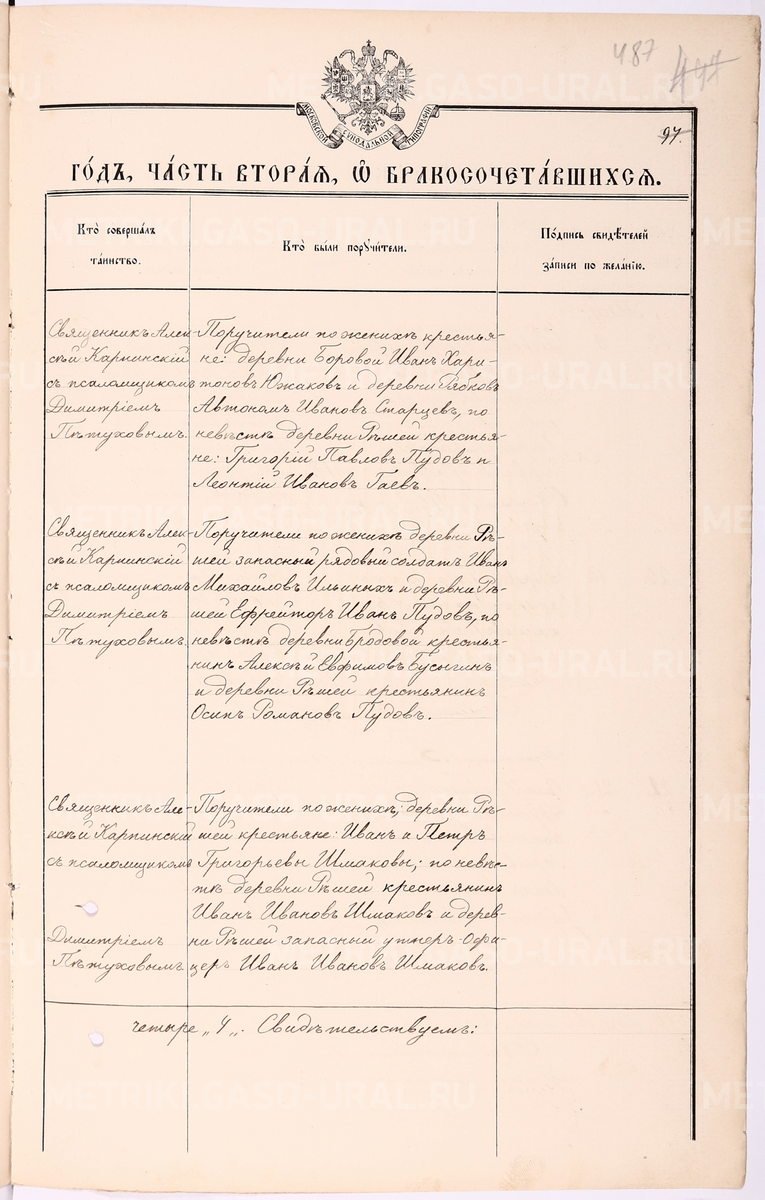 487
97.
МОСКОВСКОЙ СѴНОДАЛЬНОЙ ТИПОГРАФІИ
ГО́ДЪ, ЧА́СТЬ ВТОРА́Я, Ѽ БРАКОСОЧЕТА́ВШИХСЯ.
Кто̀ соверша́лъ
та́инство.
Кто̀ бы́ли порꙋчи́тели.
По́дпись свидѣ́телей
за́писи по жела́нїю.
Священникъ Алек-
сѣй Карпинскій
съ псаломщикомъ
Димитріемъ
Пѣтуховымъ.
Поручители по женихѣ крестья-
не: деревни Боровой Иванъ Хари-
тоновъ Южаковъ и деревни Рябковъ
Автономъ Ивановъ Старцевъ, по
невѣстѣ деревни Рѣшей крестья-
не: Григорій Павловъ Пудовъ и
Леонтій Ивановъ Гаевъ.
Священникъ Алек-
сѣй Карпинскій
съ псаломщикомъ
Димитріемъ
Пѣтуховымъ.
Поручители по женихѣ деревни Рѣ-
шей запасный рядовый солдатъ Иванъ
Михайловъ Ильиныхъ и деревни Рѣ-
шей Ефрейторъ Иванъ Пудовъ, по
невѣстѣ деревни Бродовой крестья-
нинъ Алексѣй Евфимовъ Бусыгинъ
и деревни Рѣшей крестьянинъ
Осипъ Романовъ Пудовъ.
Священникъ Але-
ксѣй Карпинскій
съ псаломщикомъ
Димитріемъ
Пѣтуховымъ.
Поручители по женихѣ; деревни Рѣ-
шей крестьяне: Иванъ и Петръ
Григорьевы Шмаковы; по невѣс-
тѣ деревни Рѣшей крестьянинъ
Иванъ Ивановъ Шмаковъ и дерев-
ни Рѣшей запасный унтеръ-офи-
церъ Иванъ Ивановъ Шмаковъ.
четыре „4„. Свидѣтельствуемъ:
METRIKI.GASO-URAL.RU